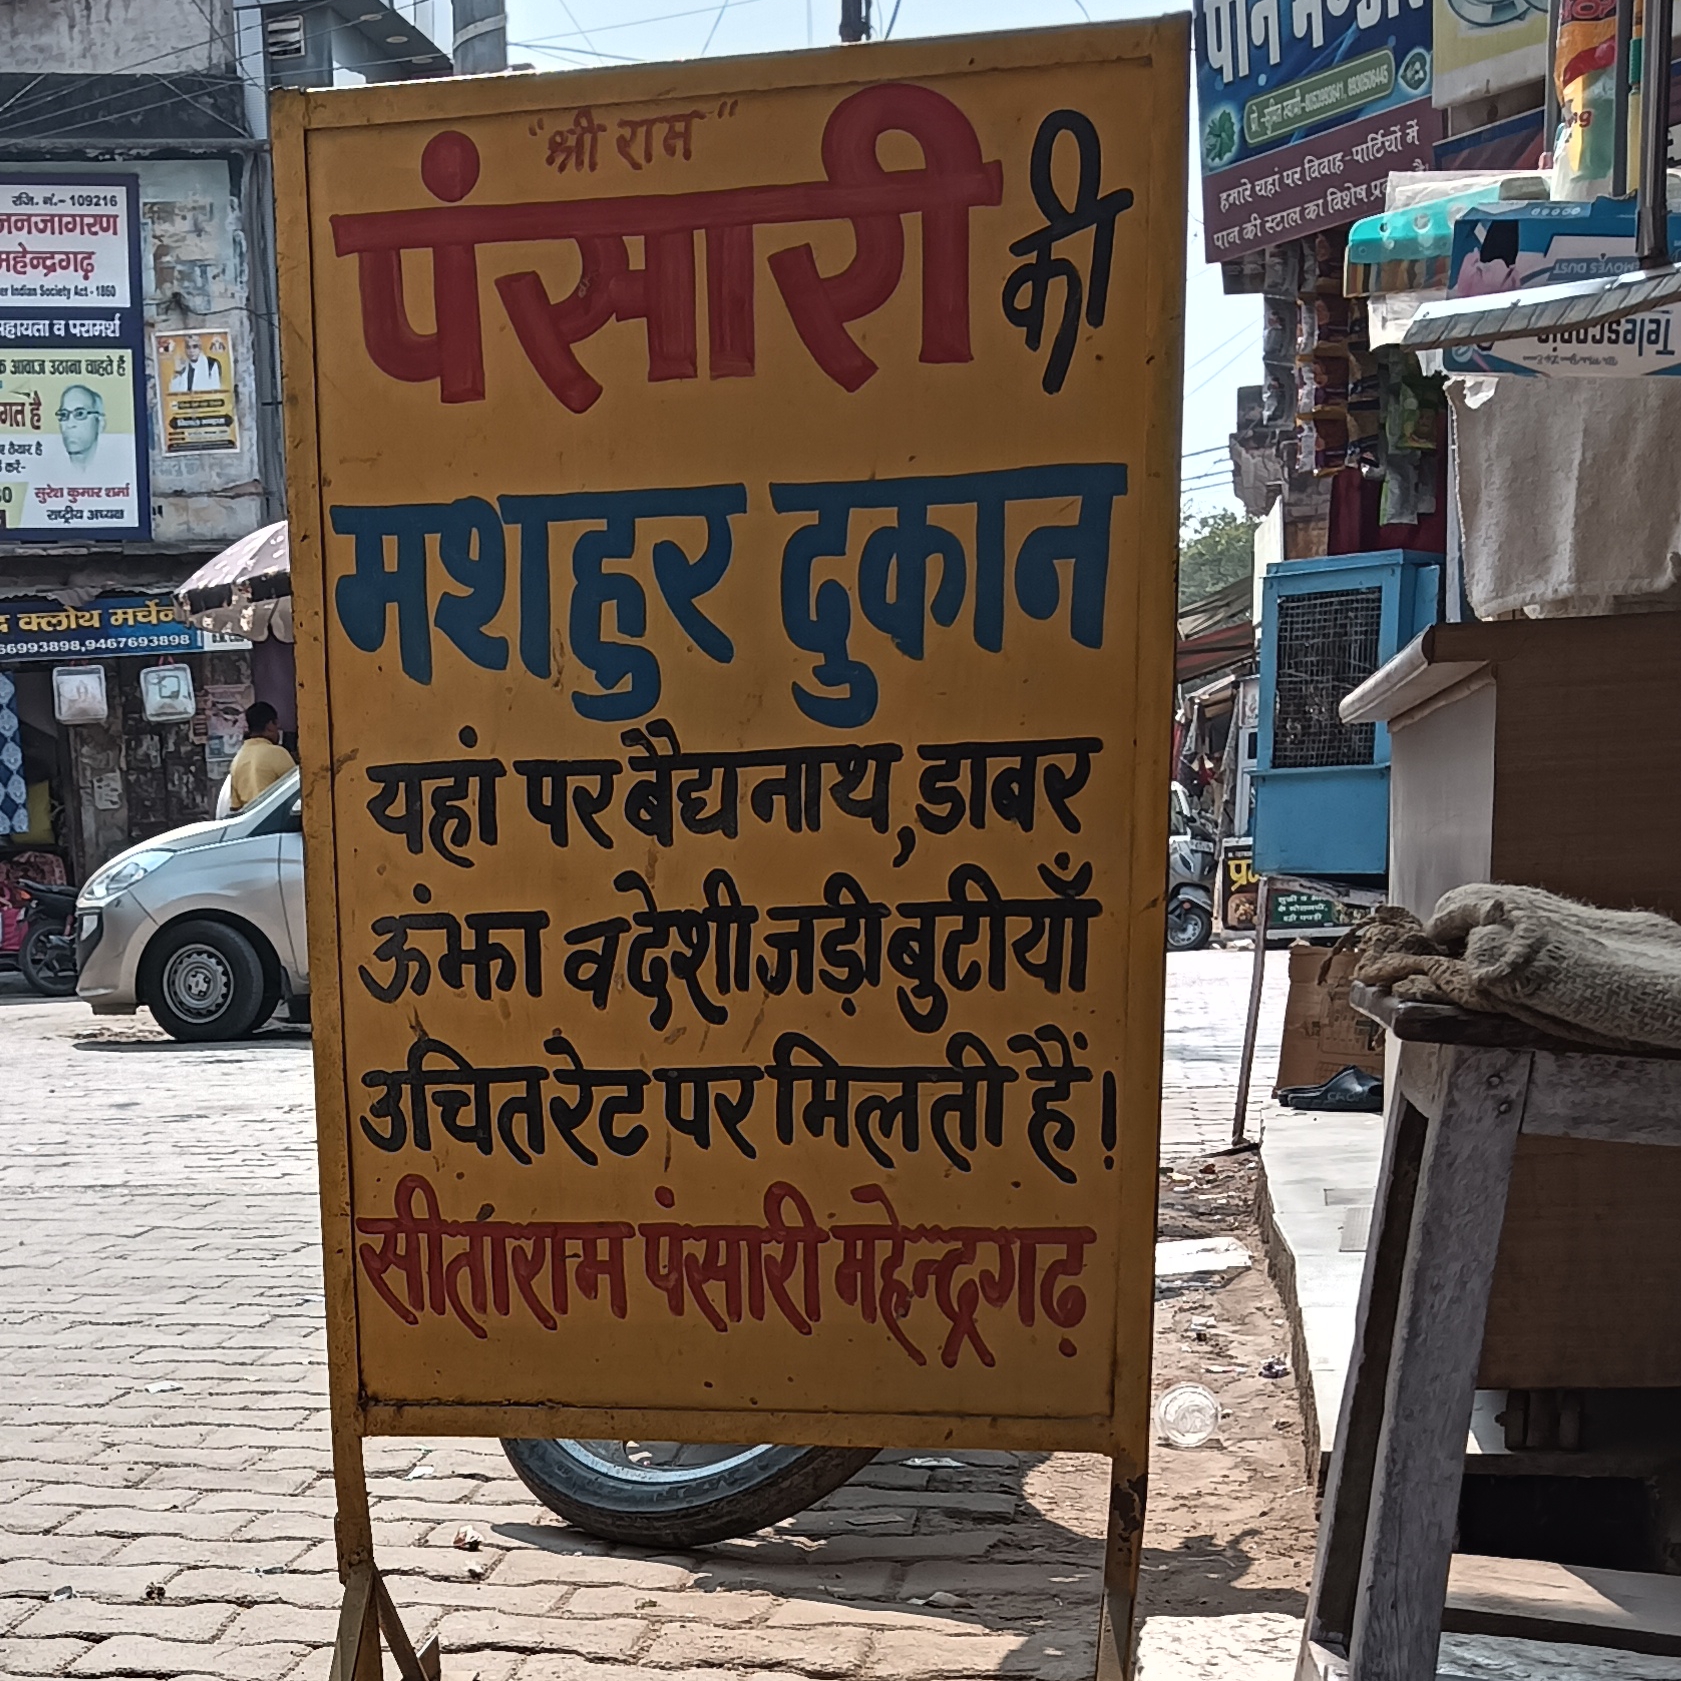 "श्री राम"
पंसारी की
मशहुर दुकान
यहां पर बैद्यनाथ, डाबर
ऊंझा व देशी जड़ी बुटीयाँ
उचित रेट पर मिलती हैं!
सीताराम पंसारी महेन्द्रगढ़
रजि. नं.- 109216
जनजागरण
महेन्द्रगढ़
er Indian Society Act - 1860
सहायता व परामर्श
क आवाज उठाना चाहते हैं
गत है
र तैयार है
करें-
सुरेश कुमार शर्मा
राष्ट्रीय अध्यक्ष
क्लोथ मर्चेन
66993898,9467693898
पान भण्डार
प्रो.-सुमित स्वामी-8053993641, 9930506445
हमारे यहां पर विवाह-पार्टियों में
पान की स्टाल का विशेष प्र
MOVES DUST
Telescopic